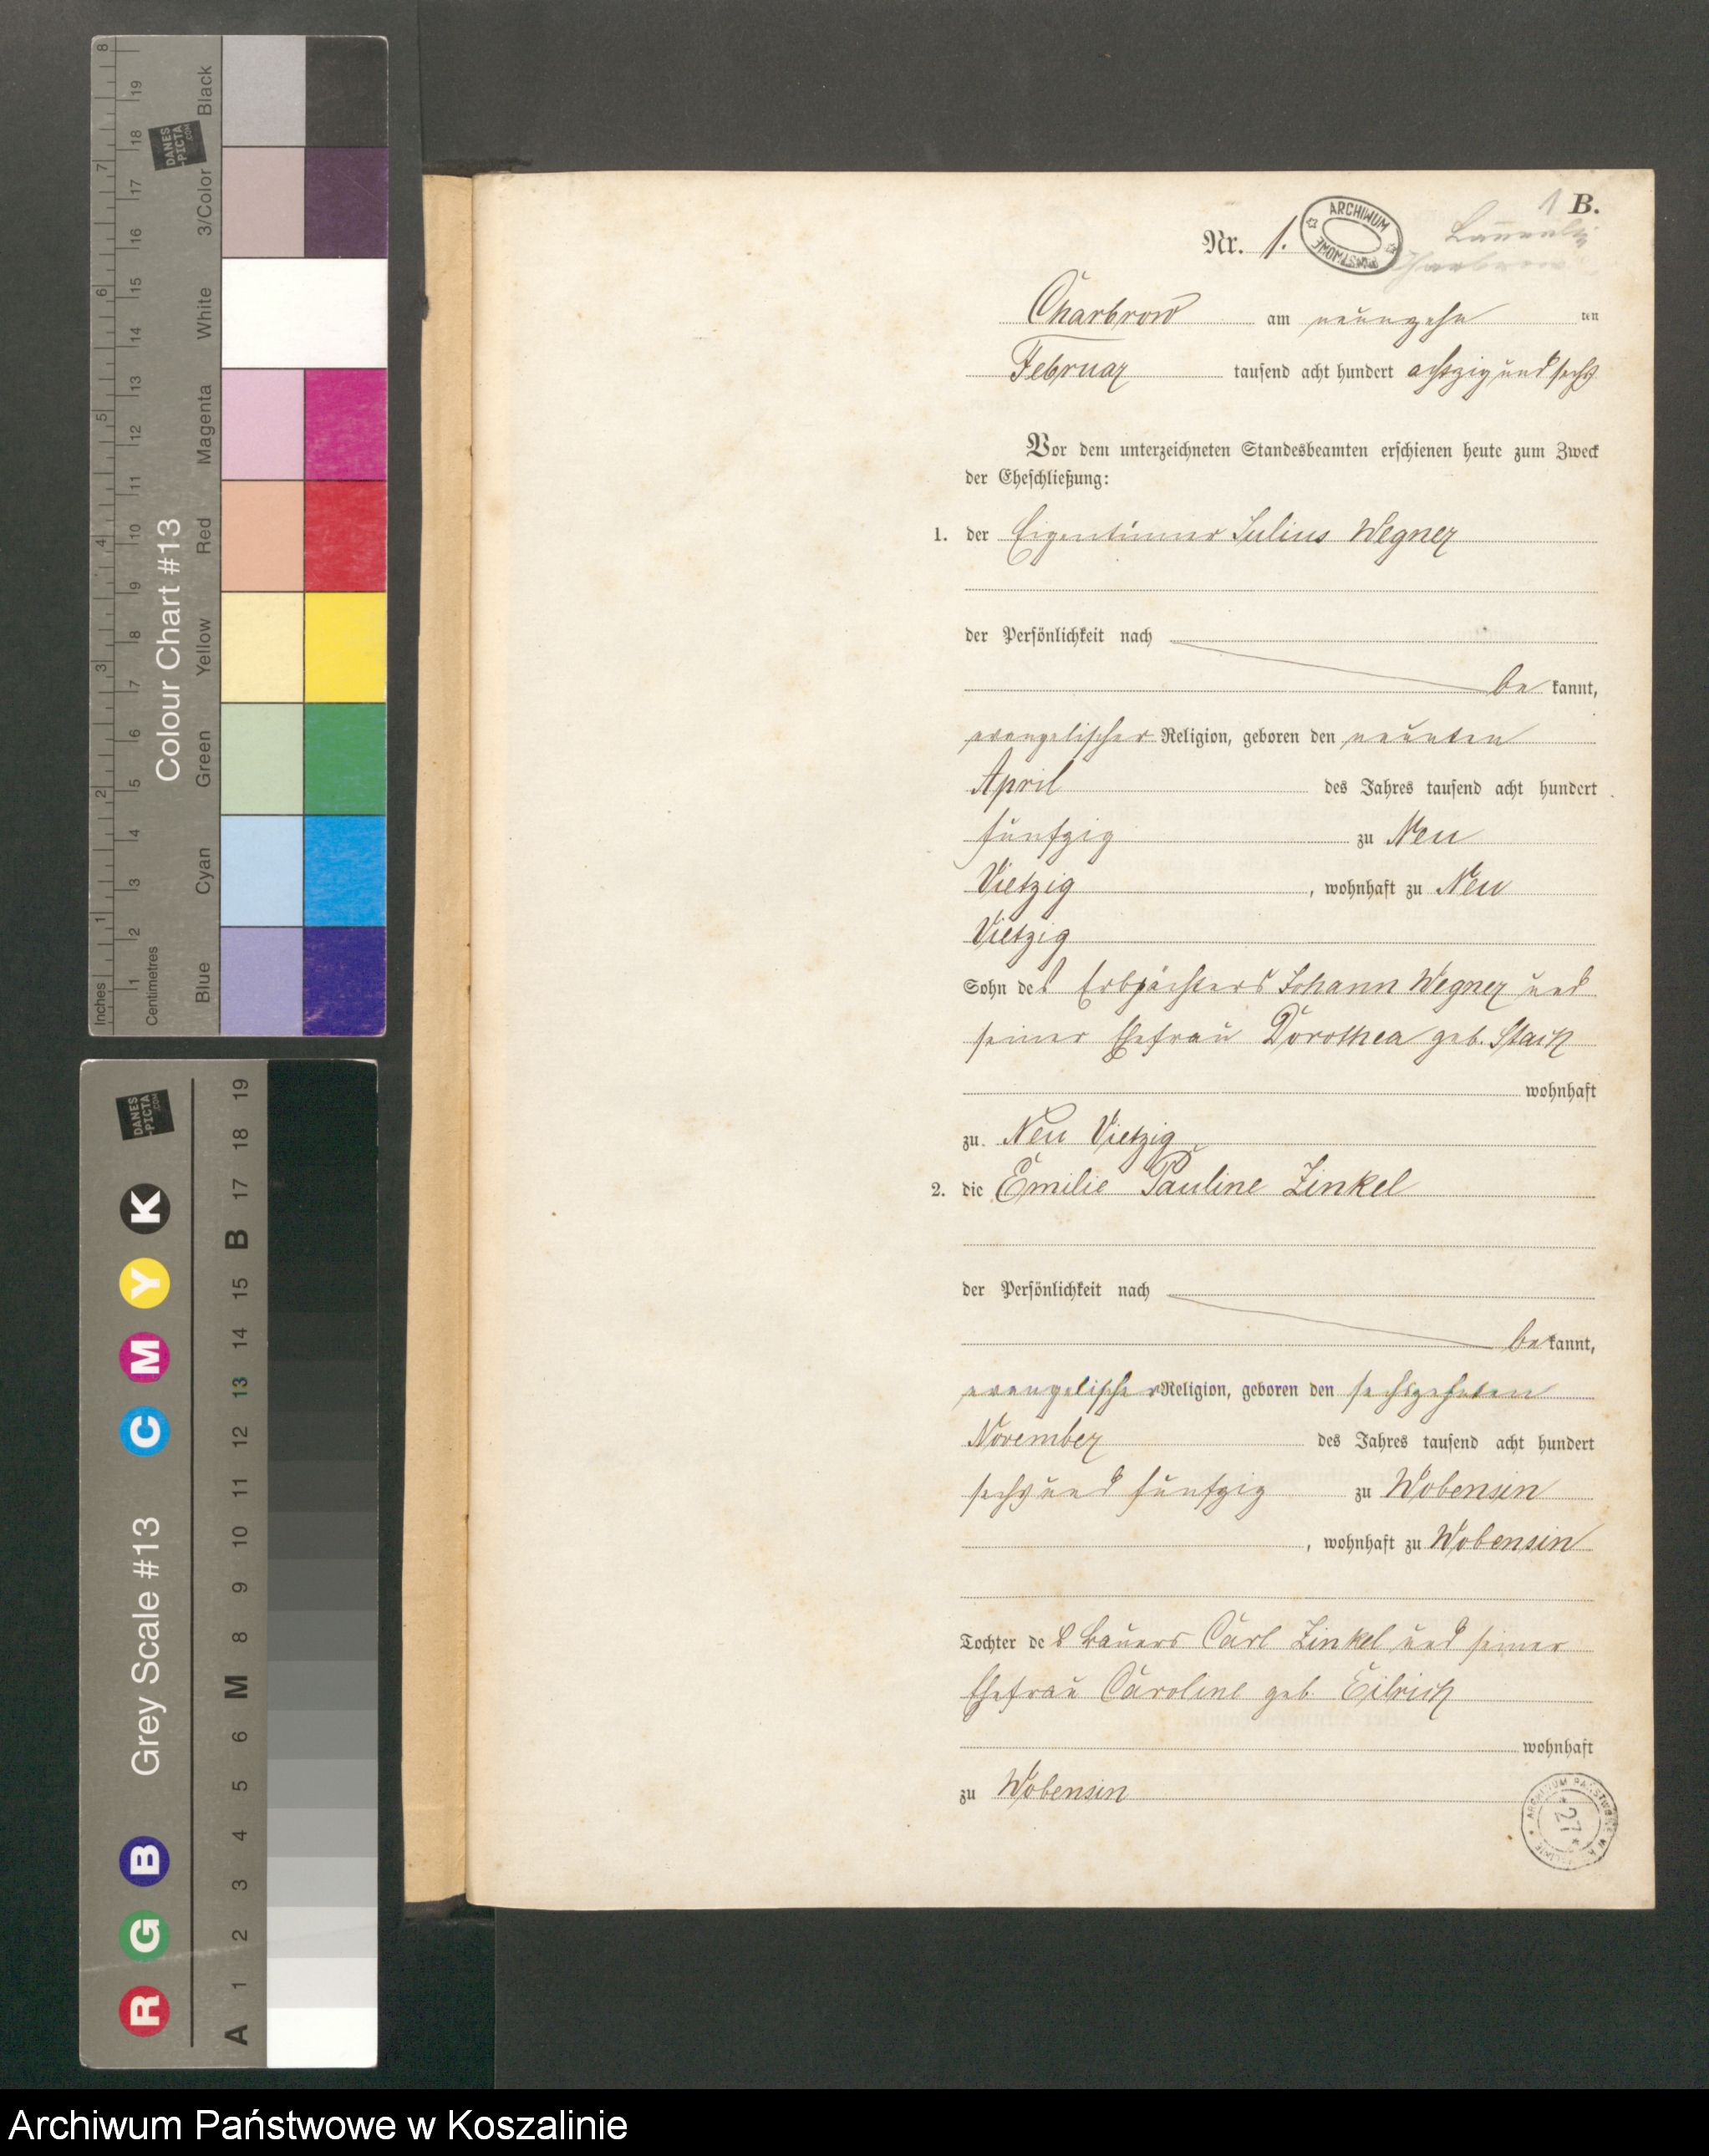 B.
1
Nr. 1.
ARCHIWUM PAŃSTWOWE
Lauenburg
Charbrow
Charbrow am neunzehn ten
Februar tausend acht hundert achtzig und sechs
Vor dem unterzeichneten Standesbeamten erschienen heute zum Zweck
der Eheschließung:
1. der Eigentümer Julius Wegner
der Persönlichkeit nach
be kannt,
evangelischer Religion, geboren den neunten
April des Jahres tausend acht hundert
fünfzig zu Neu
Vietzig, wohnhaft zu Neu
Vietzig
Sohn des Erbpächters Johann Wegner und
seiner Ehefrau Dorothea geb. Stach
wohnhaft
zu Neu Vietzig
2. die Emilie Pauline Zinkel
der Persönlichkeit nach
be kannt,
evangelischer Religion, geboren den sechszehnten
November des Jahres tausend acht hundert
sechs und fünfzig zu Wobensin
, wohnhaft zu Wobensin
Tochter des Bauers Carl Zinkel und seiner
Ehefrau Caroline geb. Eilrich
wohnhaft
zu Wobensin
ARCHIWUM PAŃSTWOWE W KOSZALINIE
27
Colour Chart #13
Inches
Centimetres
Blue Cyan Green Yellow Red Magenta White 3/Color Black
1 2 3 4 5 6 7 8
1 2 3 4 5 6 7 8 9 10 11 12 13 14 15 16 17 18 19
DANES
-PICTA
.COM
Grey Scale #13
R G B C M Y K
A 1 2 3 4 5 6 M 8 9 10 11 12 13 14 15 B 17 18 19
DANES
-PICTA
.COM
Archiwum Państwowe w Koszalinie